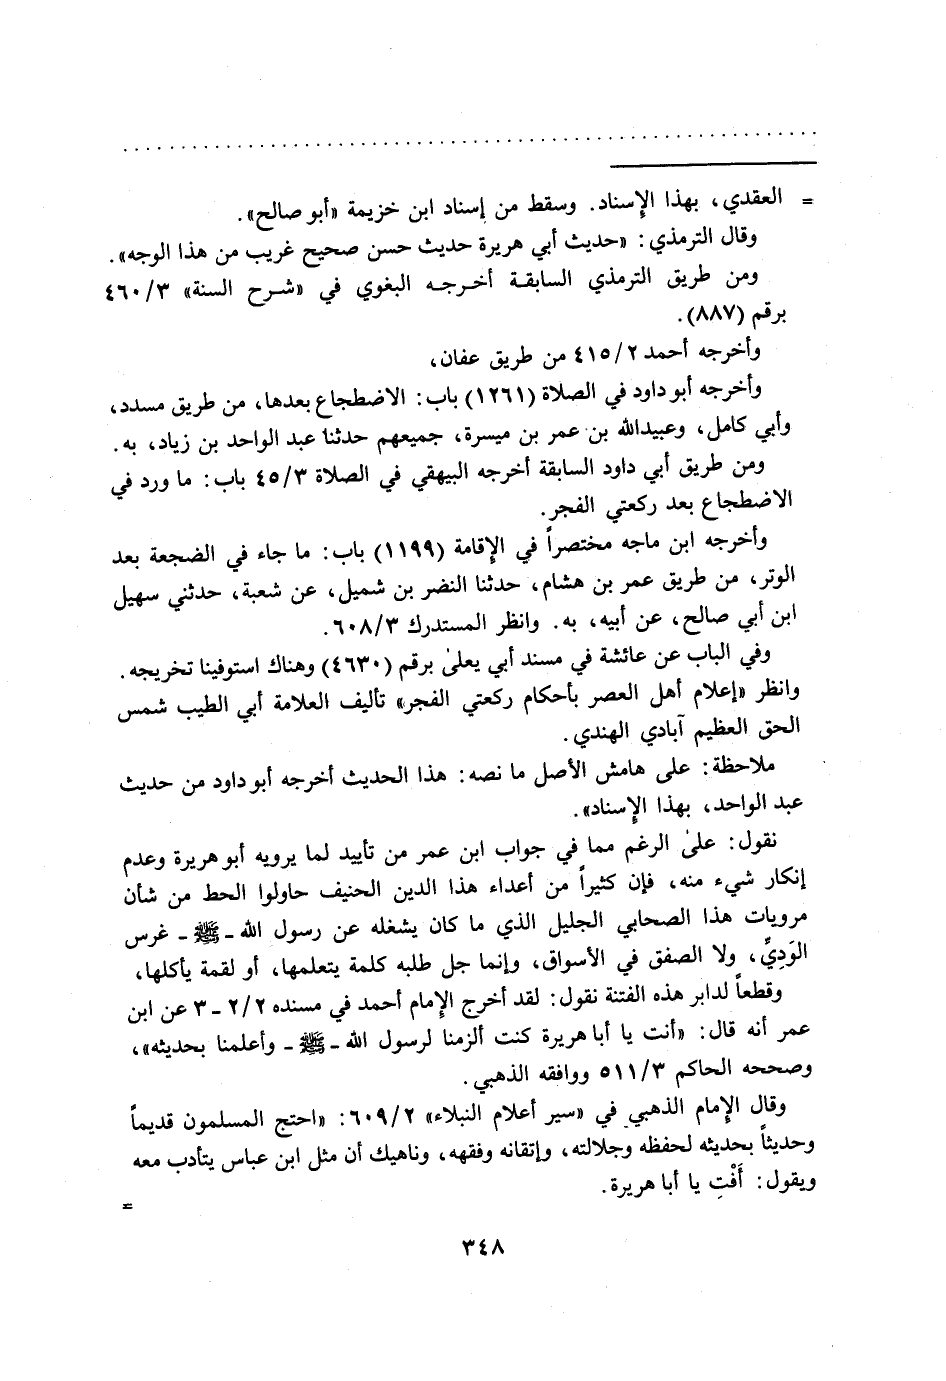 = العقدي، بهذا الإسناد. وسقط من إسناد ابن خزيمة «أبو صالح».
وقال الترمذي: «حديث أبي هريرة حديث حسن صحيح غريب من هذا الوجه».
ومن طريق الترمذي السابقة أخرجه البغوي في «شرح السنة» ٤٦٠/٣
برقم (٨٨٧).
وأخرجه أحمد ٤١٥/٢ من طريق عفان،
وأخرجه أبو داود في الصلاة (١٢٦١) باب: الاضطجاع بعدها، من طريق مسدد،
وأبي كامل، وعبيدالله بن عمر بن ميسرة، جميعهم حدثنا عبد الواحد بن زياد، به.
ومن طريق أبي داود السابقة أخرجه البيهقي في الصلاة ٤٥/٣ باب: ما ورد في
الاضطجاع بعد ركعتي الفجر.
وأخرجه ابن ماجه مختصراً في الإقامة (١١٩٩) باب: ما جاء في الضجعة بعد
الوتر، من طريق عمر بن هشام، حدثنا النضر بن شميل، عن شعبة، حدثني سهيل
ابن أبي صالح، عن أبيه، به. وانظر المستدرك ٦٠٨/٣.
وفي الباب عن عائشة في مسند أبي يعلىٰ برقم (٤٦٣٠) وهناك استوفينا تخريجه.
وانظر «إعلام أهل العصر بأحكام ركعتي الفجر» تأليف العلامة أبي الطيب شمس
الحق العظيم آبادي الهندي.
ملاحظة: على هامش الأصل ما نصه: هذا الحديث أخرجه أبو داود من حديث
عبد الواحد، بهذا الإسناد».
نقول: علىٰ الرغم مما في جواب ابن عمر من تأييد لما يرويه أبو هريرة وعدم
إنكار شيء منه، فإن كثيراً من أعداء هذا الدين الحنيف حاولوا الحط من شأن
مرويات هذا الصحابي الجليل الذي ما كان يشغله عن رسول الله ـ ﷺ ـ غرس
الوَدِيِّ، ولا الصفق في الأسواق، وإنما جل طلبه كلمة يتعلمها، أو لقمة يأكلها،
وقطعاً لدابر هذه الفتنة نقول: لقد أخرج الإمام أحمد في مسنده ٢/٢ ـ ٣ عن ابن
عمر أنه قال: «أنت يا أبا هريرة كنت ألزمنا لرسول الله ـ ﷺ ـ وأعلمنا بحديثه»،
وصححه الحاكم ٥١١/٣ ووافقه الذهبي.
وقال الإمام الذهبي في «سير أعلام النبلاء» ٦٠٩/٢: «احتج المسلمون قديماً
وحديثاً بحديثه لحفظه وجلالته، وإتقانه وفقهه، وناهيك أن مثل ابن عباس يتأدب معه
ويقول: أَفْتِ يا أبا هريرة.
=
٣٤٨